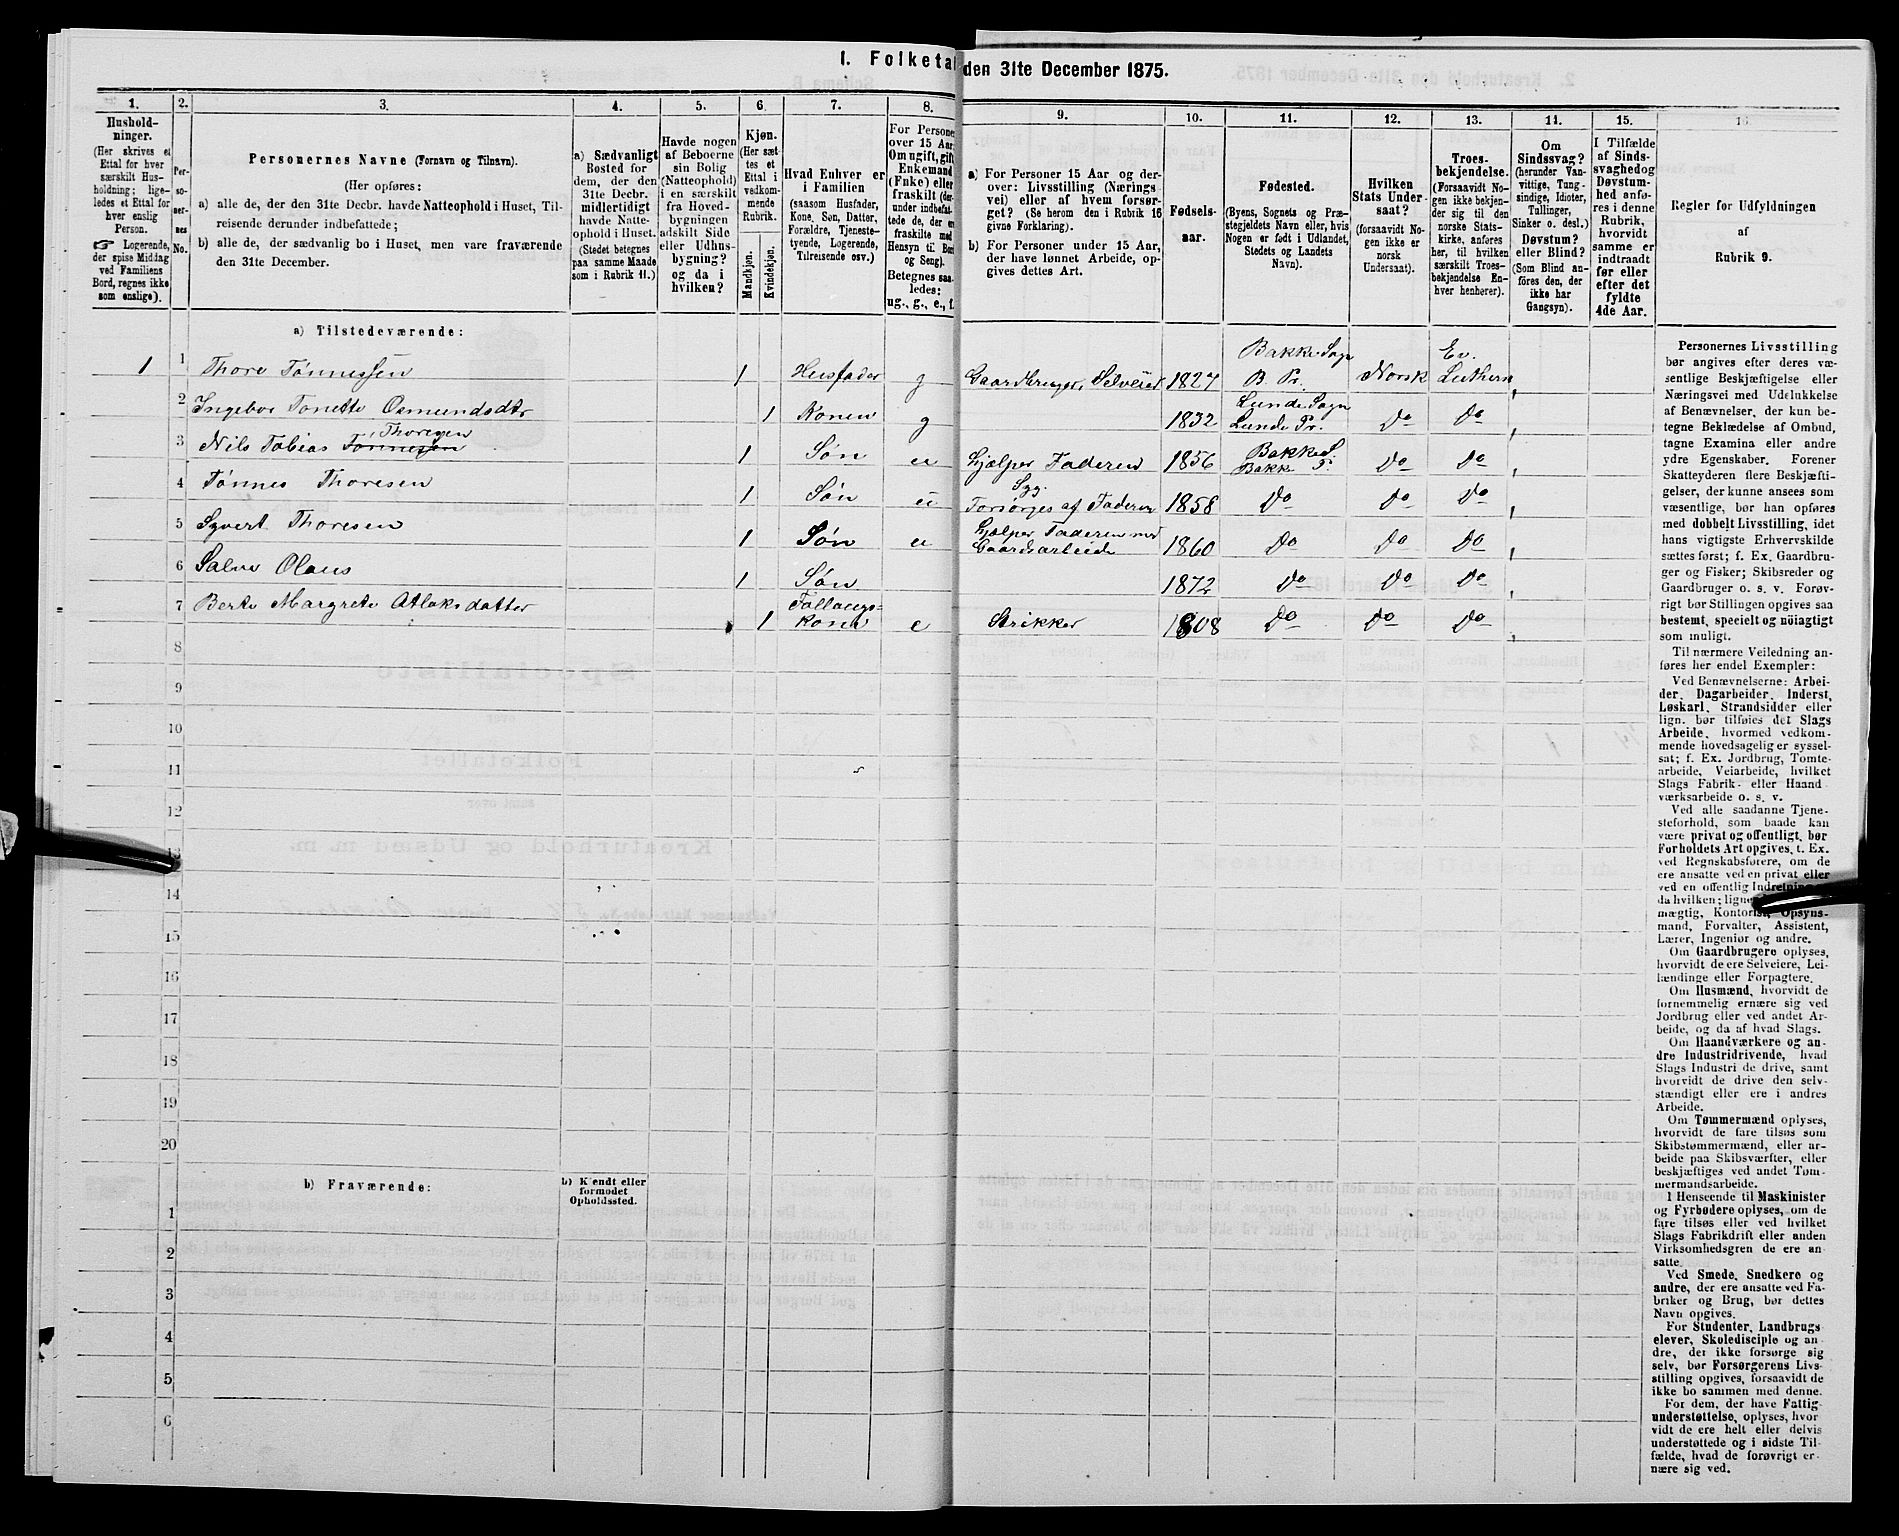 1. Folketal den 31te December 1875.
1. 2. 3. 4. 5. 6. 7. 8. 9. 10. 11. 12. 13. 14. 15. 16.
Hushold-
ninger.
(Her skrives et
Ettal for hver
særskilt Hus-
holdning; lige-
ledes et Ettal for
hver enslig
Person.
☞ Logerende,
der spise Middag
ved Familiens
Bord, regnes ikke
som enslige).
Per-
so-
ner-
nes
No.
Personernes Navne (Fornavn og Tilnavn).
(Her opføres:
a) alle de, der den 31te Decbr. havde Natteophold i Huset, Til-
reisende derunder indbefattede;
b) alle de, der sædvanlig bo i Huset, men vare fraværende
den 31te December.
a) Sædvanligt
Bosted for
dem, der den
31te Decbr.
midlertidigt
havde Natte-
ophold i Huset.
(Stedet betegnes
paa samme Maade
som i Rubrik 11.)
Havde nogen
af Beboerne
sin Bolig
(Natteophold)
i en særskilt
fra Hoved-
bygningen
adskilt Side
eller Udhus-
bygning?
og da i
hvilken?
Kjøn.
(Her sæt-
tes et
Ettal i
vedkom-
mende
Rubrik.
Mandkjøn.
Kvindekjøn.
Hvad Enhver er
i Familien
(saasom Husfader,
Kone, Søn, Datter,
Forældre, Tjeneste-
tyende, Logerende,
Tilreisende osv.)
For Personer
over 15 Aar:
Om ugift, gift,
Enkemand
(Enke) eller
fraskilt (der-
under indbefat-
tede de, der er
fraskilte med
Hensyn til Bord
og Seng).
Betegnes saa-
ledes:
ug., g., e., f.
a) For Personer 15 Aar og der-
over: Livsstilling (Nærings-
vei) eller af hvem forsør-
get? (Se herom den i Rubrik 16
givne Forklaring).
b) For Personer under 15 Aar,
der have lønnet Arbeide, op-
gives dettes Art.
Fødsels-
aar.
Fødested.
(Byens, Sognets og Præ-
stegjeldets Navn eller, hvis
Nogen er født i Udlandet,
Stedets og Landets
Navn).
Hvilken
Stats Under-
saat?
(forsaavidt No-
gen ikke er
norsk
Undersaat).
Troes-
bekjendelse.
(Forsaavidt No-
gen ikke bekjen-
der sig til den
norske Stats-
kirke, anføres
her, til hvilken
særskilt Troes-
bekjendelse En-
hver henhører).
Om
Sindssvag?
(herunder Van-
vittige, Tung-
sindige, Idioter,
Tullinger,
Sinker o. desl.)
Døvstum?
eller Blind?
(Som Blind an-
føres den, der
ikke har
Gangsyn).
I Tilfælde
af Sinds-
svaghed og
Døvstum-
hed anfø-
res i denne
Rubrik,
hvorvidt
samme er
indtraadt
før eller
efter det
fyldte
4de Aar.
Regler for Udfyldningen
af
Rubrik 9.
a) Tilstedeværende:
1 1 Thore Tønnessen 1 Husfader g Gaardbruger, Selveier 1827 Bakke Sogn B. Pr. Norsk Ev. Luthersk
2 Ingebor Tonette Osmundsdtr 1 Konen g 1832 Lunde Sogn Lunde Pr. Do Do
3 Nils Tobias Tønnessen Thoresen 1 Søn u Hjælper Faderen 1856 Bakke S. Bakke P. Do Do
4 Tønnes Thoresen 1 Søn u Syg. Forsørges af Faderen 1858 Do Do Do
5 Syvert Thoresen 1 Søn u Hjælper Faderen med Gaardsarbeide 1860 Do Do Do
6 Salve Olaus 1 Søn 1872 Do Do Do
7 Berte Margrete Atlaksdatter 1 Føllaugs-kone e Strikker 1808 Do Do Do
8
9
10
11
12
13
14
15
16
17
18
19
20
b) Fraværende:
b) Kjendt eller
formodet
Opholdssted.
1
2
3
4
5
6
Personernes Livsstilling
bør angives efter deres væ-
sentlige Beskjæftigelse eller
Næringsvei med Udelukkelse
af Benævnelser, der kun be-
tegne Beklædelse af Ombud,
tagne Examina eller andre
ydre Egenskaber. Forener
Skatteyderen flere Beskjæfti-
gelser, der kunne ansees som
væsentlige, bør han opføres
med dobbelt Livsstilling, idet
hans vigtigste Erhvervskilde
sættes først; f. Ex. Gaardbru-
ger og Fisker; Skibsreder og
Gaardbruger o. s. v. Forøv-
rigt bør Stillingen opgives saa
bestemt, specielt og nöiagtigt
som muligt.
Til nærmere Veiledning an-
føres her endel Exempler:
Ved Benævnelserne: Arbei-
der, Dagarbeider, Inderst,
Løskarl, Strandsidder eller
lign. bør tilføies det Slags
Arbeide, hvormed vedkom-
mende hovedsagelig er syssel-
sat; f. Ex. Jordbrug, Tomte-
arbeide, Veiarbeide, hvilket
Slags Fabrik- eller Haand
værksarbeide o. s. v.
Ved alle saadanne Tjene-
steforhold, som baade kan
være privat og offentligt, bør
Forholdets Art opgives, t. Ex.
ved Regnskabsførere, om de
ere ansatte ved en privat eller
ved en offentlig Indretning og
da hvilken; ligne
mægtig, Kontorist, Opsyns-
mand, Forvalter, Assistent,
Lærer, Ingeniør og andre.
Om Gaardbrugere oplyses,
hvorvidt de ere Selveiere, Lei-
lændinge eller Forpagtere.
Om Husmænd, hvorvidt de
fornemmelig ernære sig ved
Jordbrug eller ved andet Ar-
beide, og da af hvad Slags.
Om Haandværkere og an-
dre Industridrivende, hvad
Slags Industri de drive, samt
hvorvidt de drive den selv-
stændigt eller ere i andres
Arbeide.
Om Tømmermænd oplyses,
hvorvidt de fare tilsøs som
Skibstømmermænd, eller ar-
beide paa Skibsværfter, eller
beskjæftiges ved andet Tøm-
mermandsarbeide.
I Henseende til Maskinister
og Fyrbødere oplyses, om de
fare tilsøs eller ved hvilket
Slags Fabrikdrift eller anden
Virksomhedsgren de ere an-
satte.
Ved Smede, Snedkere og
andre, der ere ansatte ved Fa-
briker og Brug, bør dettes
Navn opgives.
For Studenter, Landbrugs
elever, Skoledisciple og an-
dre, der ikke forsørge sig
selv, bør Forsørgerens Livs-
stilling opgives, forsaavidt de
ikke bo sammen med denne.
For dem, der have Fattig-
understøttelse, oplyses, hvor
vidt de ere helt eller delvis
understøttede og i sidste Til-
fælde, hvad de forøvrigt er-
nære sig ved.